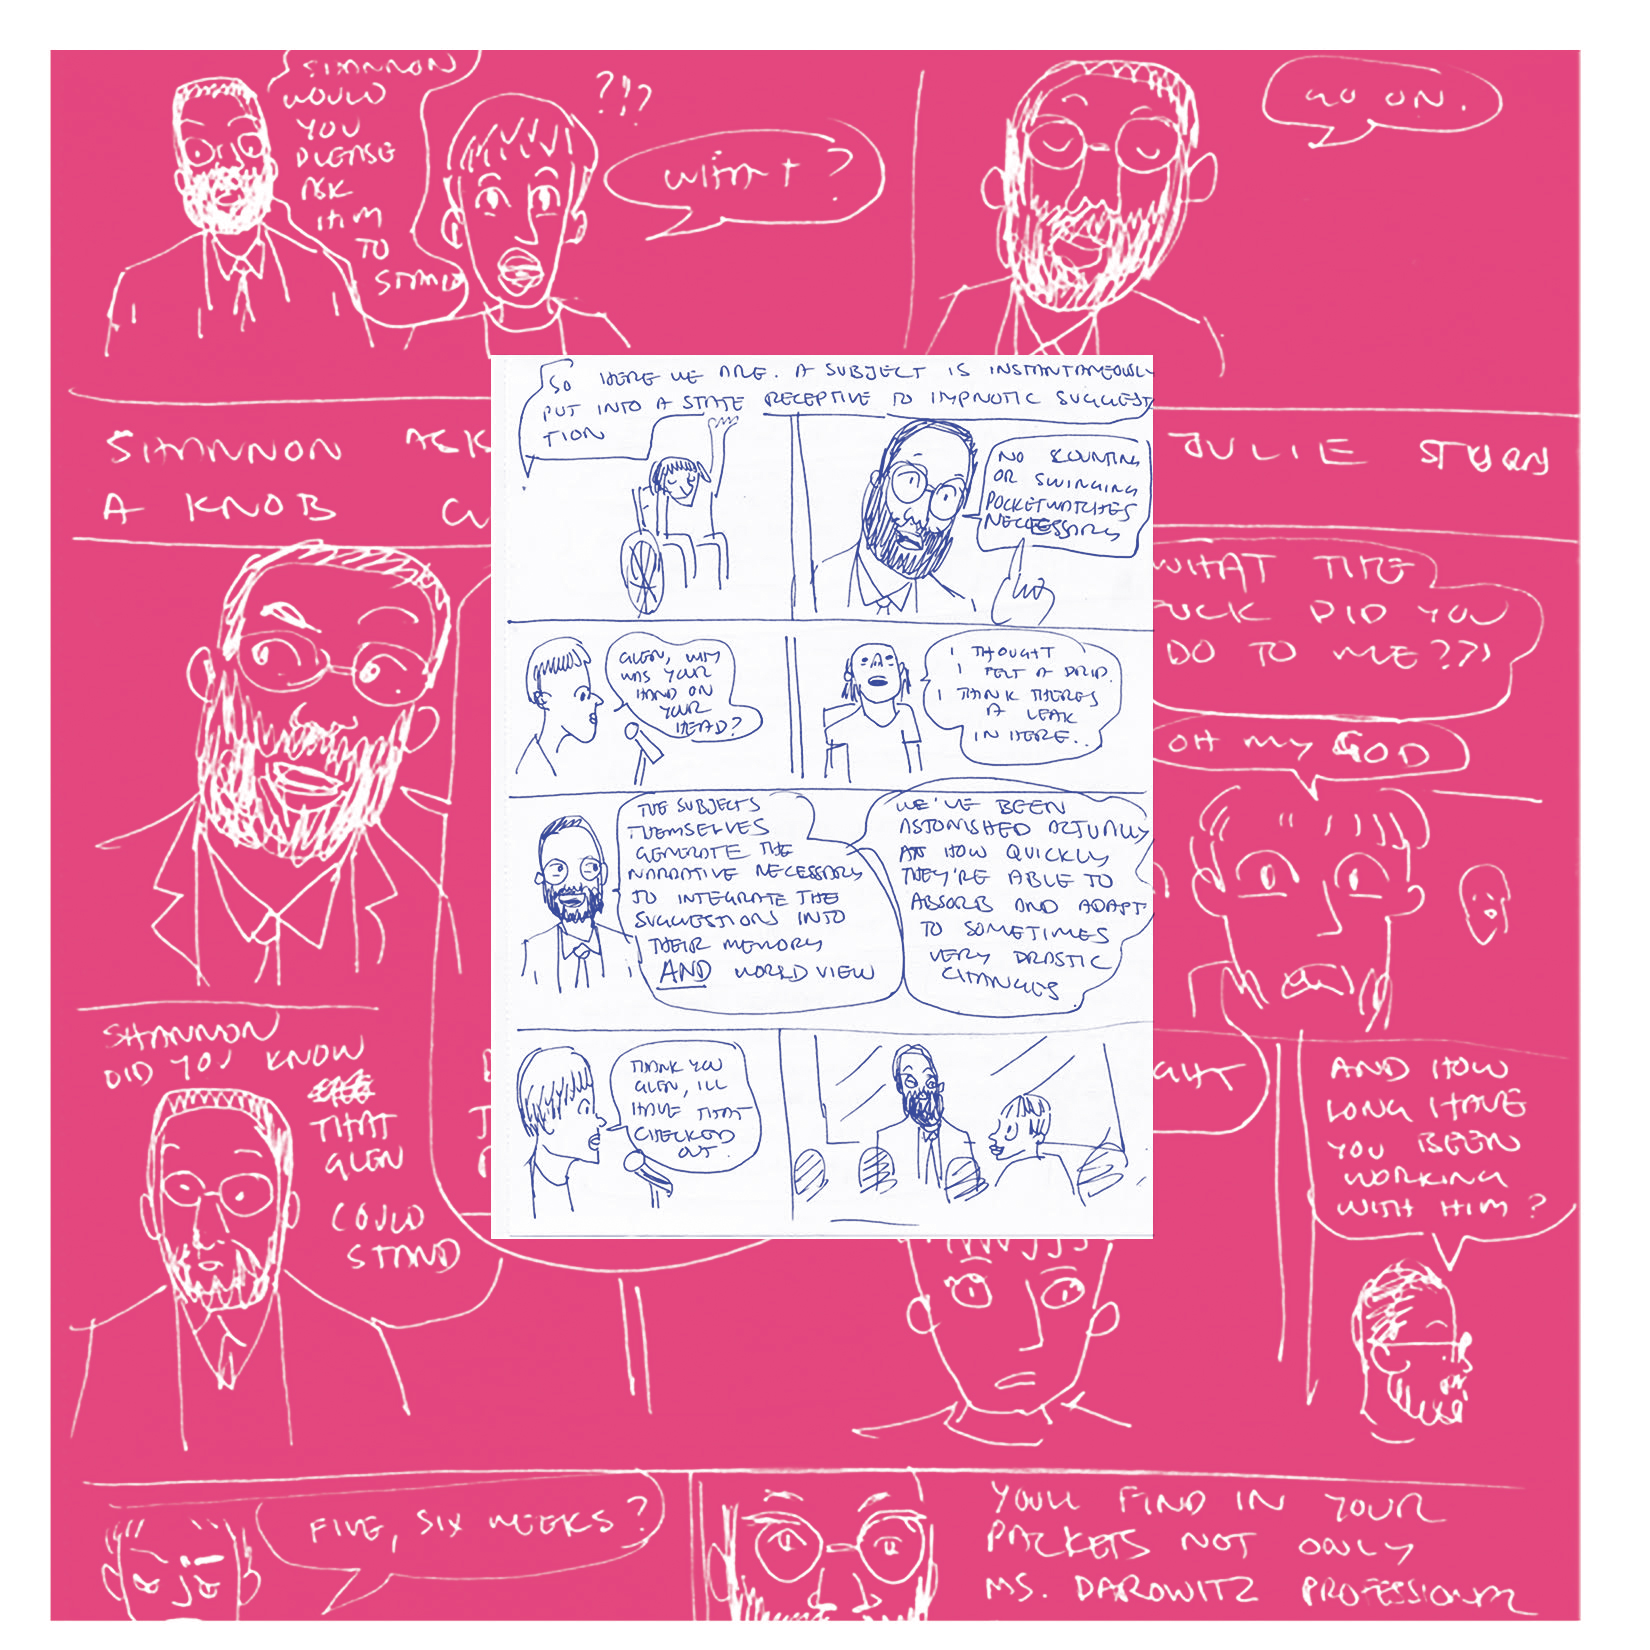 SHANNON
WOULD
YOU
PLEASE
ASK
HIM
TO
STAND
?!?
WHAT?
GO ON.
SHANNON ASK
A KNOB
JULIE STUDY
WHAT THE
FUCK DID YOU
DO TO ME???
OH MY GOD
SHANNON
DID YOU KNOW
THAT
GLEN
COULD
STAND
AND HOW
LONG HAVE
YOU BEEN
WORKING
WITH HIM?
FIVE, SIX WEEKS?
YOULL FIND IN YOUR
PACKETS NOT ONLY
MS. DAROWITZ PROFESSIONAL
SO HERE WE ARE. A SUBJECT IS INSTANTANEOUSLY
PUT INTO A STATE RECEPTIVE TO HYPNOTIC SUGGEST
TION
NO COUNTING
OR SWINGING
POCKETWATCHES
NECESSARY
GLEN, WHY
WAS YOUR
HAND ON
YOUR
HEAD?
I THOUGHT
I FELT A DRIP.
I THINK THERES
A LEAK
IN HERE..
THE SUBJECTS
THEMSELVES
GENERATE THE
NARRATIVE NECESSARY
TO INTEGRATE THE
SUGGESTIONS INTO
THEIR MEMORY
AND WORLD VIEW
WE'VE BEEN
ASTONISHED ACTUALLY
AT HOW QUICKLY
THEY'RE ABLE TO
ABSORB AND ADAPT
TO SOMETIMES
VERY DRASTIC
CHANGES
THANK YOU
GLEN, ILL
HAVE THAT
CHECKED
OUT.